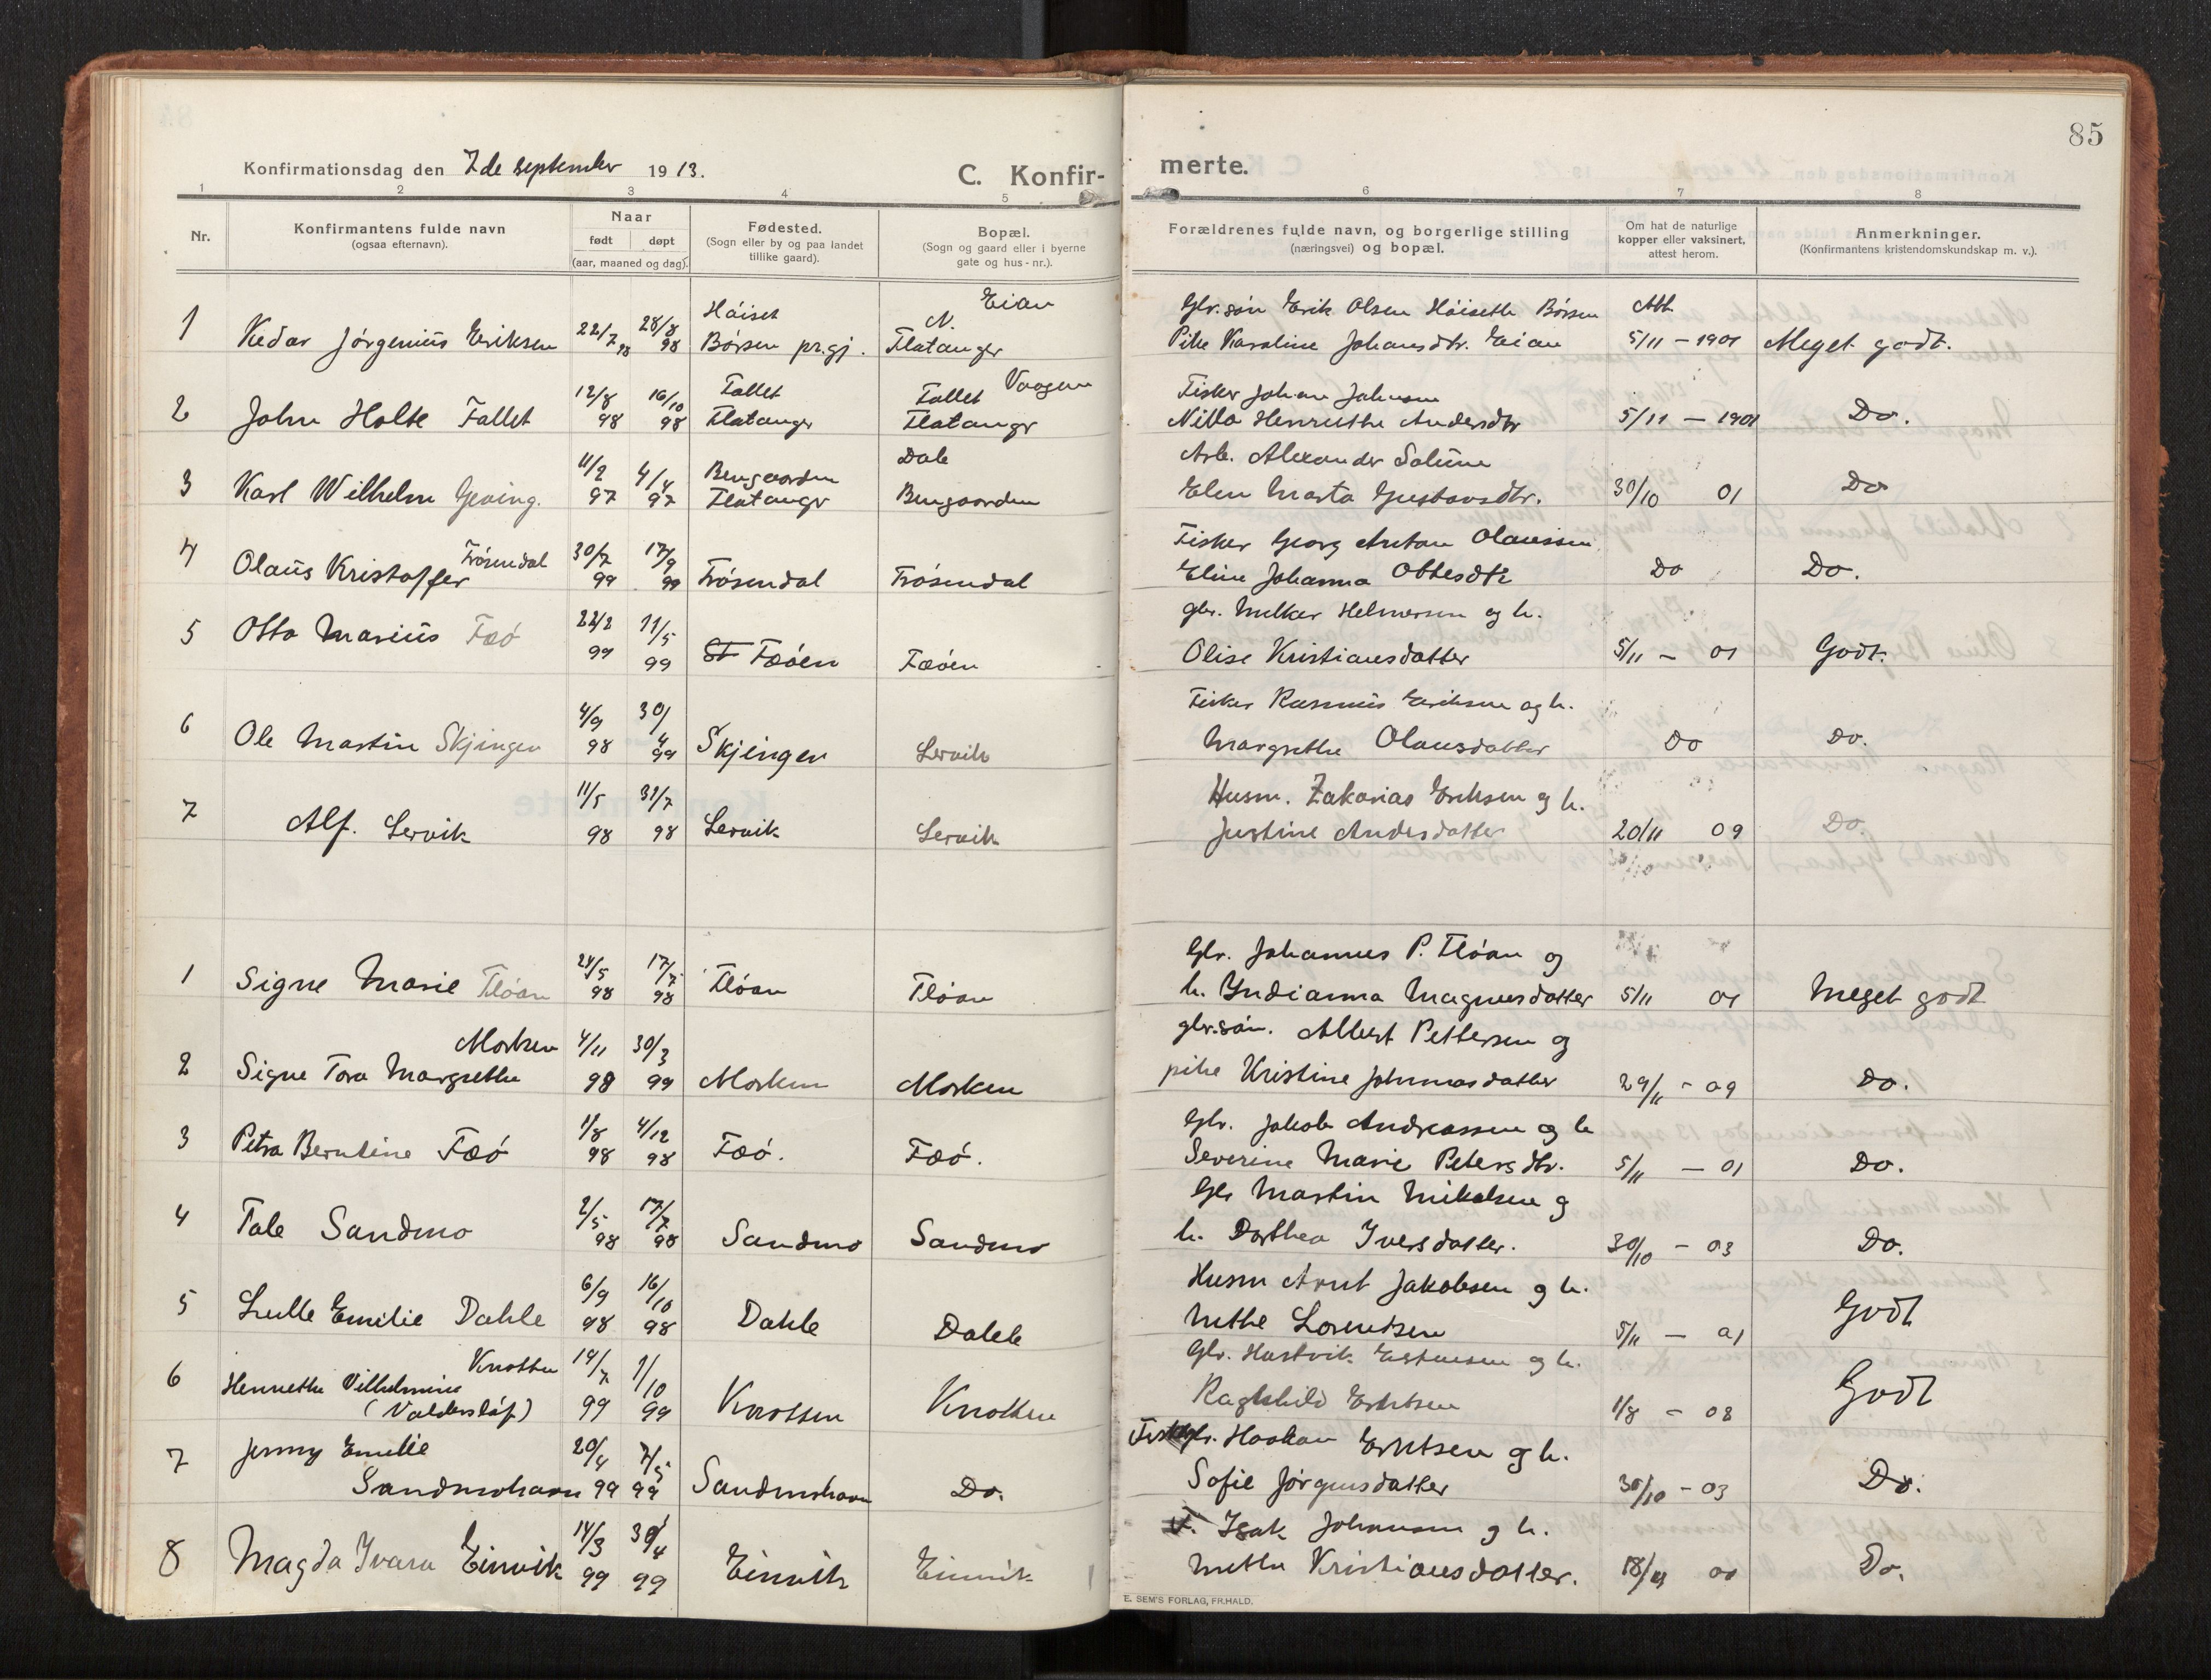 85
Konfirmationsdag den 7de september 1913.
C. Konfir-
merte.
1 2 3 4 5 6 7 8
Nr.
Konfirmantens fulde navn
(ogsaa efternavn).
Naar
født døpt
(aar, maaned og dag).
Fødested.
(Sogn eller by og paa landet
tillike gaard).
Bopæl.
(Sogn og gaard eller i byerne
gate og hus-nr.).
Forældrenes fulde navn, og borgerlige stilling
(næringsvei) og bopæl.
Om hat de naturlige
kopper eller vaksinert,
attest herom.
Anmerkninger.
(Konfirmantens kristendomskundskap m. v.).
Høiset Eian Gbr. søn Erik Olsen Høiseth Børsen Att.
1 Kedar Jørgenius Eriksen 22/7 98 28/8 98 Børsen pr.gj. N. Flatanger Pike Karoline Johansdtr. Eian 5/11 - 1901 Meget godt.
12/8 16/10 Fallet Fallet Vaagen Fisker Johan Johnsen
2 John Holte Fallet 98 98 Flatanger Flatangr Henriette Andersdtr 5/11 - 1901 Do.
11/2 4/4 Bengaarden Dale Arb. Alexander Salime
3 Karl Wilhelm Geving. 97 97 Flatangr Bengaarden Elen Marta Gustavsdtr. 30/10 01 Do
4 Frøsendal 30/7 17/9 Fisker Georg Anton Olaussen
Olaüs Kristoffer 99 99 Frøsendal Frøsendal Eline Johanna Ottesdtr Do Do.
5 Otto Mariüs Faø 22/2 11/5 gbr. Helmersen og h.
99 99 Fæøen Fæøen Olise Kristiansdatter 5/11 - 01 Godt.
6 4/9 30/4 Fisker Rasmus Eriksen og h.
Ole Martin Skjingen 98 99 Skjingen Lervik Margrethe Olausdatter Do Do.
7 11/5 31/7 Husm. Zakarias Eriksen og h.
Alf. Lervik 98 98 Lervik Lervik Justine Andersdatter 20/11 09 Do.
24/5 17/7 Gbr. Johannes P. Fløan og
1 Signe Marie Fløan 98 98 Fløan Fløan h. Indianna Magnusdatter 5/11 01 Meget godt
Morken 4/11 30/3 gbr.søn. Albert Pettersen og
2 Signe Tora Margrethe 98 99 Morken Morken pike Kristine Johnnasdatter 29/11 - 09 Do.
1/8 4/12 Gbr. Jakob Andreassen og h
3 Petra Berntine Fæø 98 98 Fæø. Fæø. Severine Marie Petersdtr. 5/11 - 01 Do.
2/5 17/7 Gbr Martin Mikalsen og
4 Tale Sandmo 98 98 Sandmo Sandmo h. Dorthea Iversdatter. 30/10 - 03 Do.
6/9 16/10 Husm Arnt Jakobsen og h.
5 Lulle Emilie Dahle 98 98 Dahle Dahle Methe Lorentsen 5/11 - 01 Godt
Knotten 14/7 1/10 Gbr. Hartvik og h.
6 Henriette Vilhelmine
(Valdersløf) 99 99 Knotten Knotten Ragnhild Eritsen 1/8 - 08 Godt
Jenny Emilie 20/4 7/5 gbr. Haakan Eritsen og h.
7 Sandmohavn 99 99 Sandmohavn Do. Sofie Jørgensdatter 30/10 - 03 Do.
14/3 30/4 F. Isak Johansen og h.
8 Magda Ivara Einvik 99 99 Einvik Einvik Methe Kristiansdatter. 18/11 00 Do.
E. SEM'S FORLAG, FR.HALD.